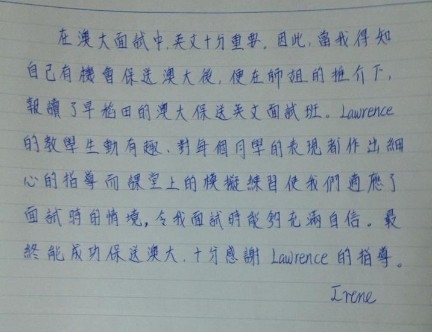 在澳大面試中,英文十分重要。因此,當我得知
自己有機會保送澳大後,便在師姐的推介下,
報讀了早稻田的澳大保送英文面試班。Lawrence
的教學生動有趣,對每個同學的表現都作出細
心的指導而課堂上的模擬練習使我們適應了
面試時的情境,令我面試時能夠充滿自信。最
終能成功保送澳大,十分感謝 Lawrence 的指導。
Irene